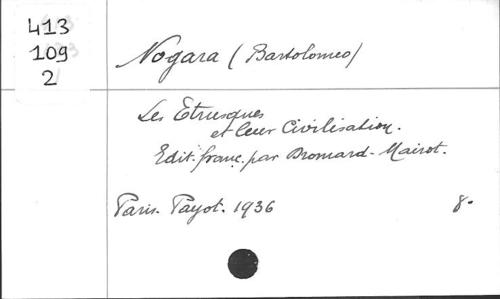 413
109
2
Nogara (Bartolomeo)
Les Etrusques
et leur Civilisation.
Edit. franç. par Bromard-Mairot.
Paris. Payot. 1936 8.